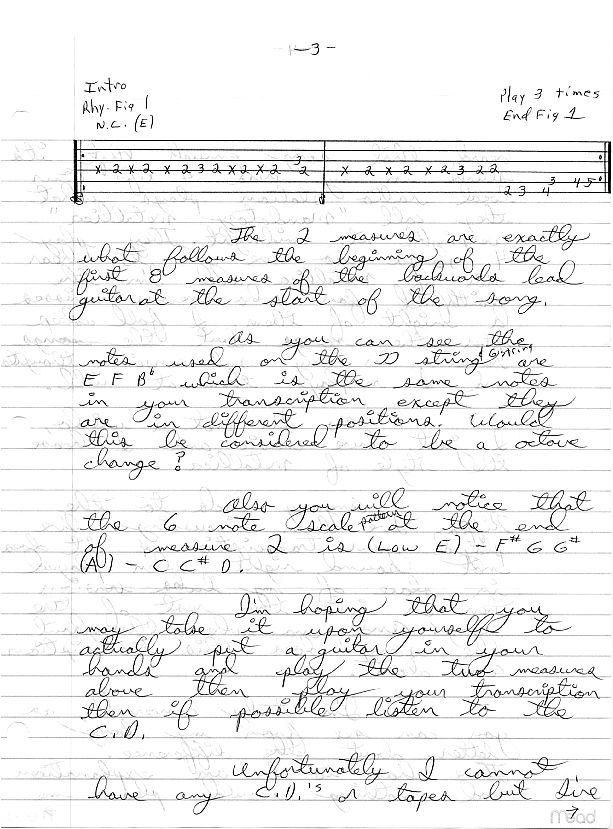 -3-
Intro
Rhy. Fig 1
N.C. (E)
Play 3 times
End Fig 1
x 2 x 2 x 2 3 2 x 2 x 2 3 2 x 2 x 2 x 2 3 2 2
2 3 4 3 4 5
The 2 measures are exactly
what follows the beginning of the
first 8 measures of the backwards lead
guitar at the start of the song.
As you can see the
notes used on the D string & G string are
E F Bb which is the same notes
in your transcription except they
are in different positions. Would
this be considered to be a octave
change?
Also you will notice that
the 6 note scale pattern at the end
of measure 2 is (Low E) - F# G G#
(A) - C C# D.
I'm hoping that you
may take it upon yourself to
actually put a guitar in your
hands and play the two measures
above then play your transcription
then if possible listen to the
C.D.
Unfortunately I cannot
have any C.D.'s or tapes but I've
→
mead